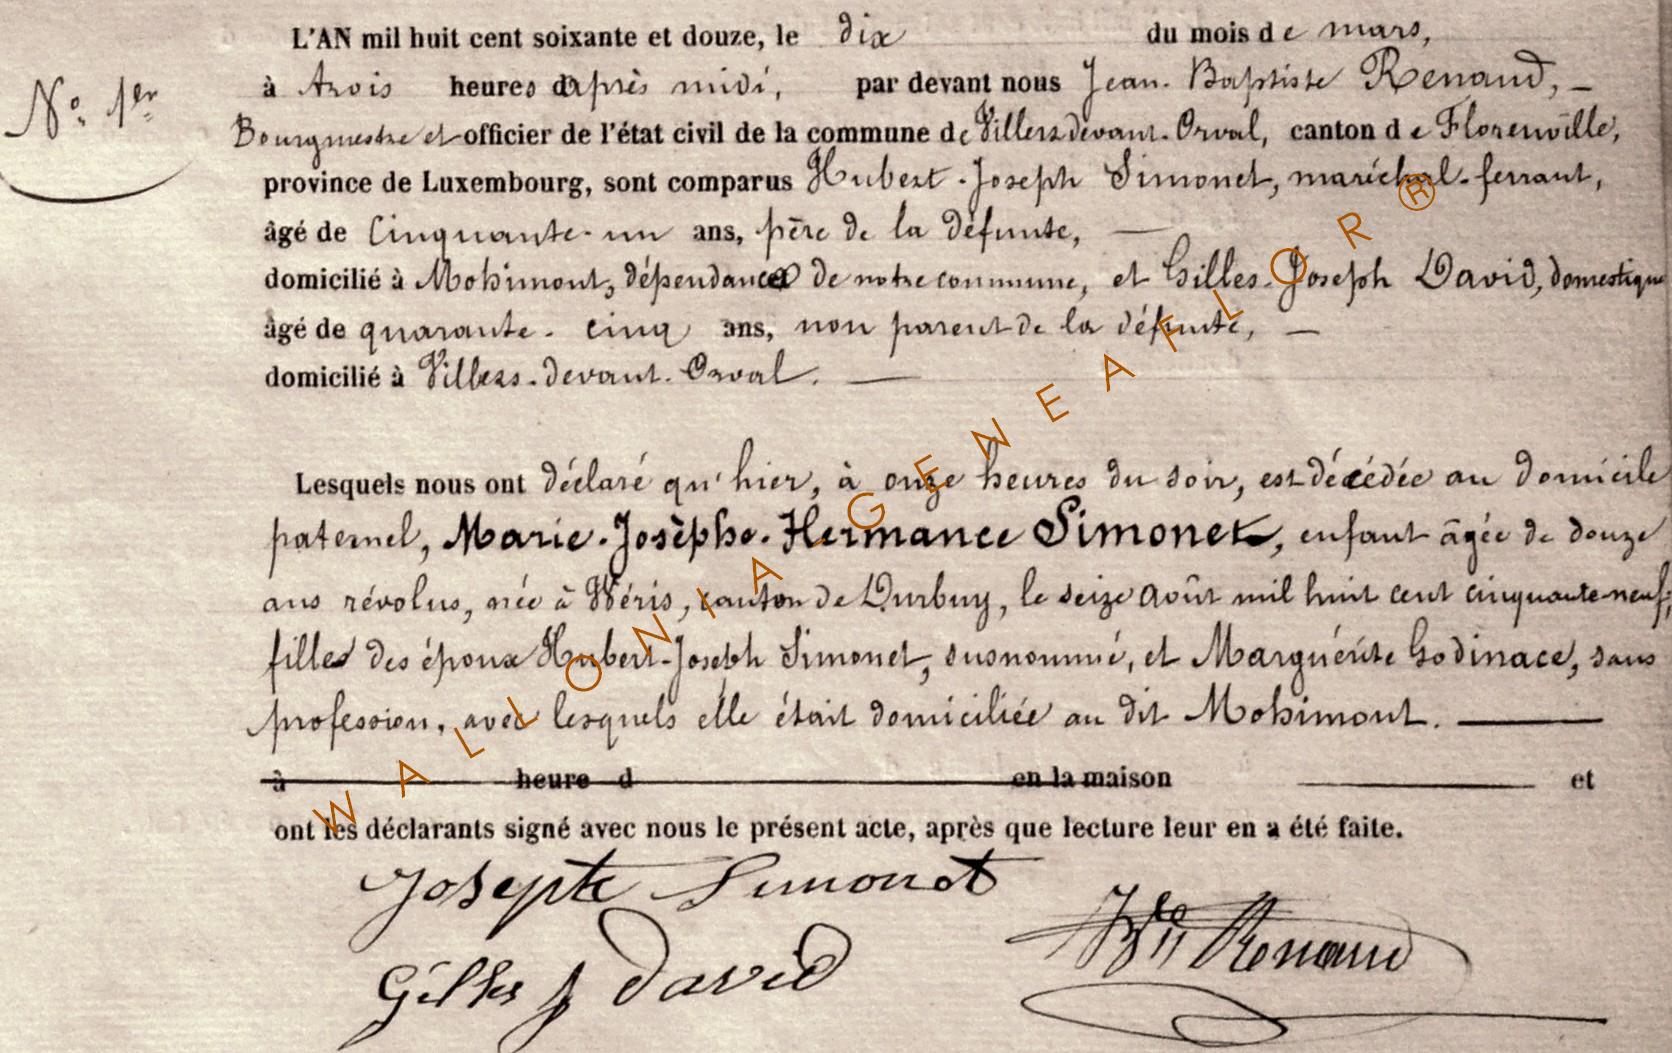 L'AN mil huit cent soixante et douze, le dix du mois de mars,
à trois heures après midi, par devant nous Jean-Baptiste Renaud, —
N° 1er
Bourgmestre et officier de l'état civil de la commune de Villers devant-Orval, canton de Florenville,
province de Luxembourg, sont comparus Hubert-Joseph Simonet, maréchal-ferrant,
âgé de cinquante-un ans, père de la défunte, —
domicilié à Mohimont, dépendance de notre commune, et Gilles-Joseph David, domestique
âgé de quarante-cinq ans, non parent de la défunte, —
domicilié à Villers-devant-Orval. —
Lesquels nous ont déclaré qu'hier, à onze heures du soir, est décédée au domicile
paternel, Marie-Josèphe-Hermance Simonet, enfant âgée de douze
ans révolus, née à Wéris, canton de Durbuy, le seize août mil huit cent cinquante-neuf,
filles des époux Hubert-Joseph Simonet, susnommé, et Marguérite Godinace, sans
profession, avec lesquels elle était domiciliée au dit Mohimont. —
à heure d en la maison et
ont les déclarants signé avec nous le présent acte, après que lecture leur en a été faite.
Josepte Simonet
Gilles j David
Renaud
WALLONIA-GENEAFLOR®